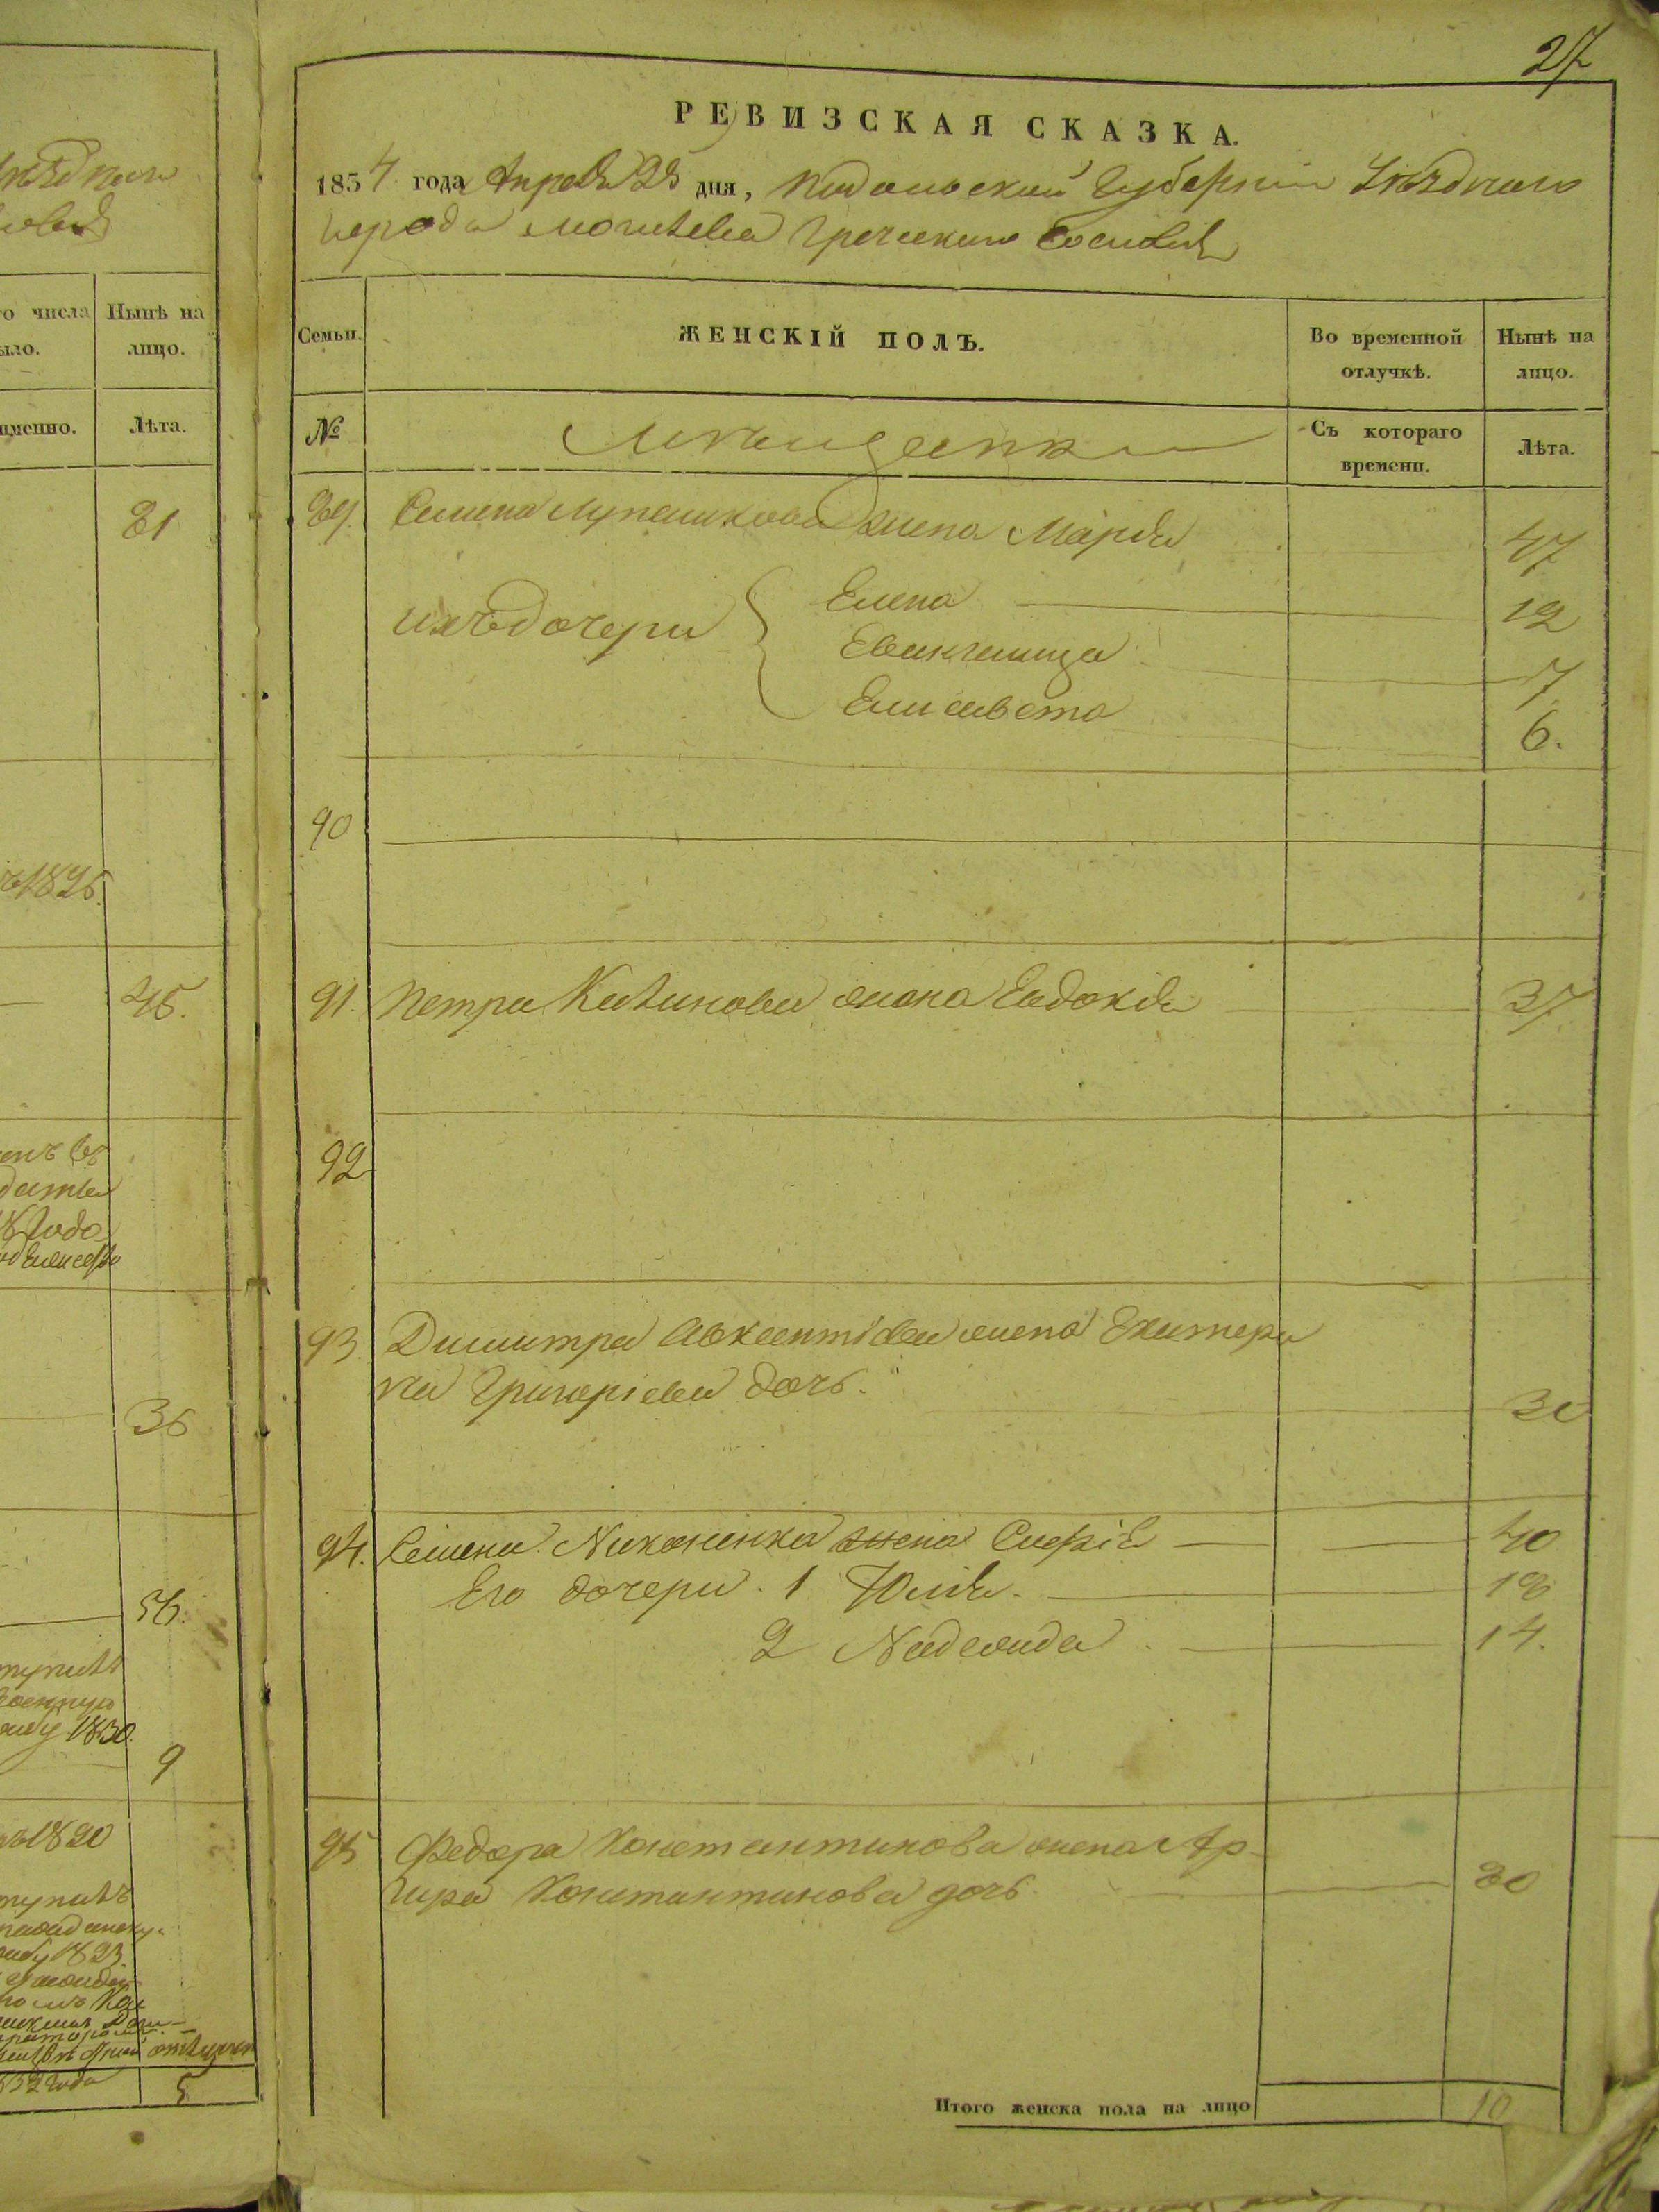 27
РЕВИЗСКАЯ СКАЗКА.
1834 года Апреля 25 дня, Подольской Губерніи Уѣзднаго
города Могилева Греческаго Сословія
го числа
ыло.
Нынѣ на
лицо.
именно.
Лѣта.
Семьи.
ЖЕНСКІЙ ПОЛЪ.
Во временной
отлучкѣ.
Нынѣ на
лицо.
№
Мѣщанки
Съ котораго
времени.
Лѣта.
89. Семена Лупашкова жена Марія 47
ихъ дочери Елена 12
Евангелица 7
Елисавета 6.
90
91. Петра Калинова жена Евдокія 37
92
93. Димитра Авксентіева жена Екатери
на Григорієва дочь. 30
94. Семена Никоненка жена Софія 40
Его дочери. 1 Юлія. 18
2 Надежда 14.
95 Федора Константинова жена Ар-
гира Константинова дочь 20
Итого женска пола на лицо 10
1825.
45.
года
36
56.
военную
1830.
9
1820
1823
года 5